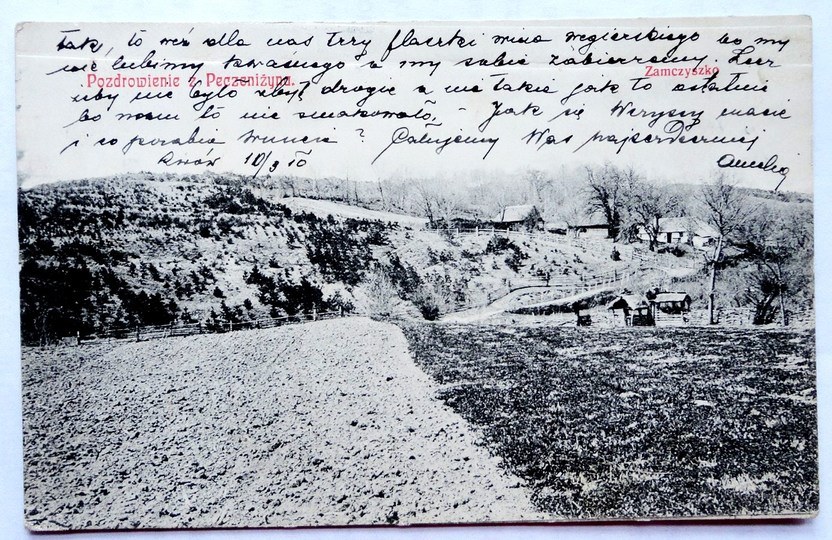 tak, to weź dla nas trzy flaszki wina węgierskiego bo my
nie lubimy kwaśnego a my sobie zabierzemy. Lecz
Pozdrowienie z Peczeniżyna.
Zamczysko
żby nie było zbyt drogie a nie takie jak to ostatnie
bo nam to nie smakowało, - Jak się Wszyscy macie
i co porabia ? Całujemy Was najserdeczniej
Lwów 10/9 10